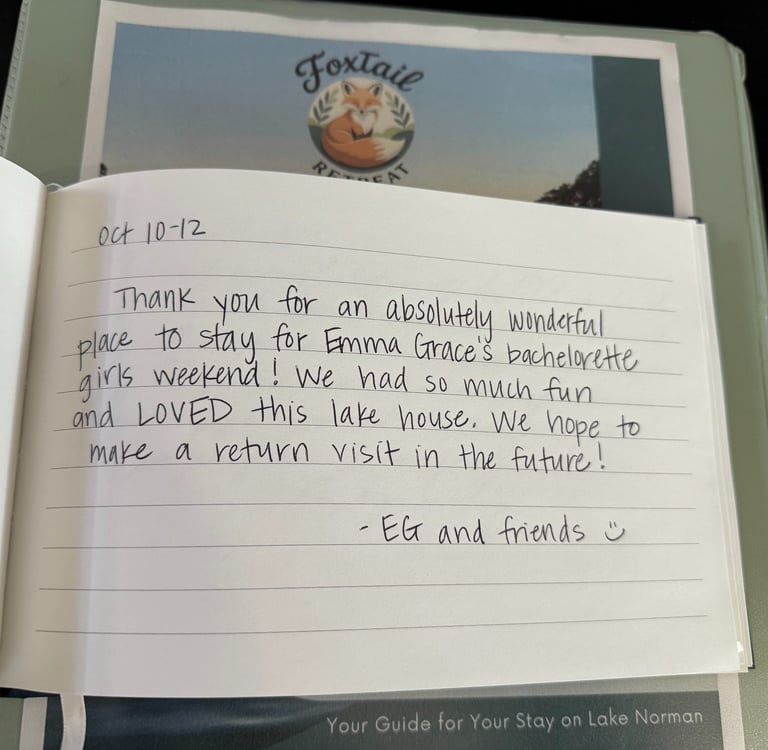 Foxtail
RETREAT
Oct 10-12
Thank you for an absolutely wonderful
place to stay for Emma Grace's bachelorette
girls weekend! We had so much fun
and LOVED this lake house. We hope to
make a return visit in the future!
- EG and friends :)
Your Guide for Your Stay on Lake Norman